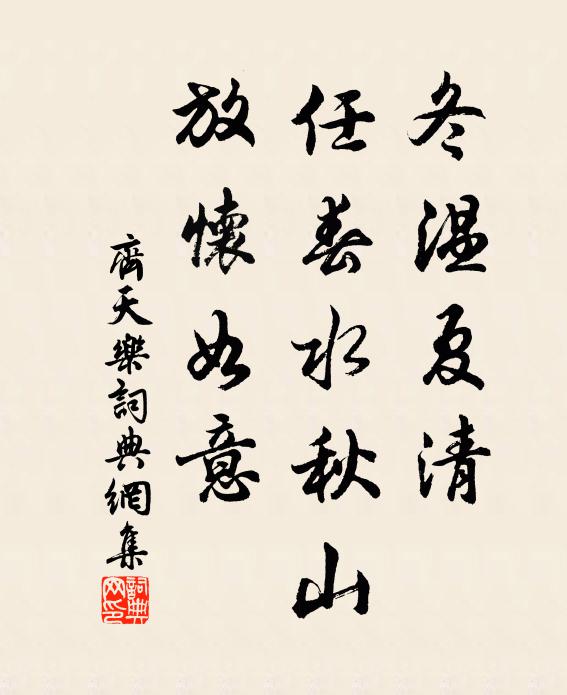 冬温夏清
任春水秋山
放懷如意
齊天樂詞典網集
詞典网印